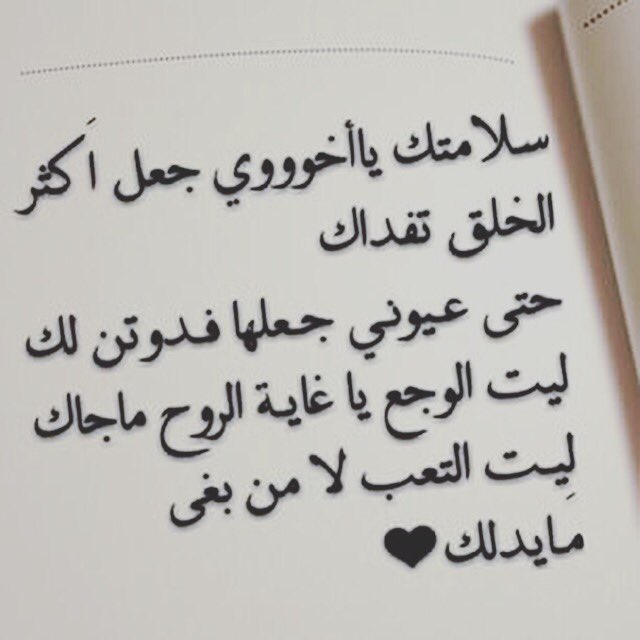 سلامتك ياأخوووي جعل اَكثر
الخلق تفداك
حتى عيوني جعلها فدوتن لك
ليت الوجع يا غاية الروح ماجاك
لِيت التعب لا من بغى
مَايدلك🖤